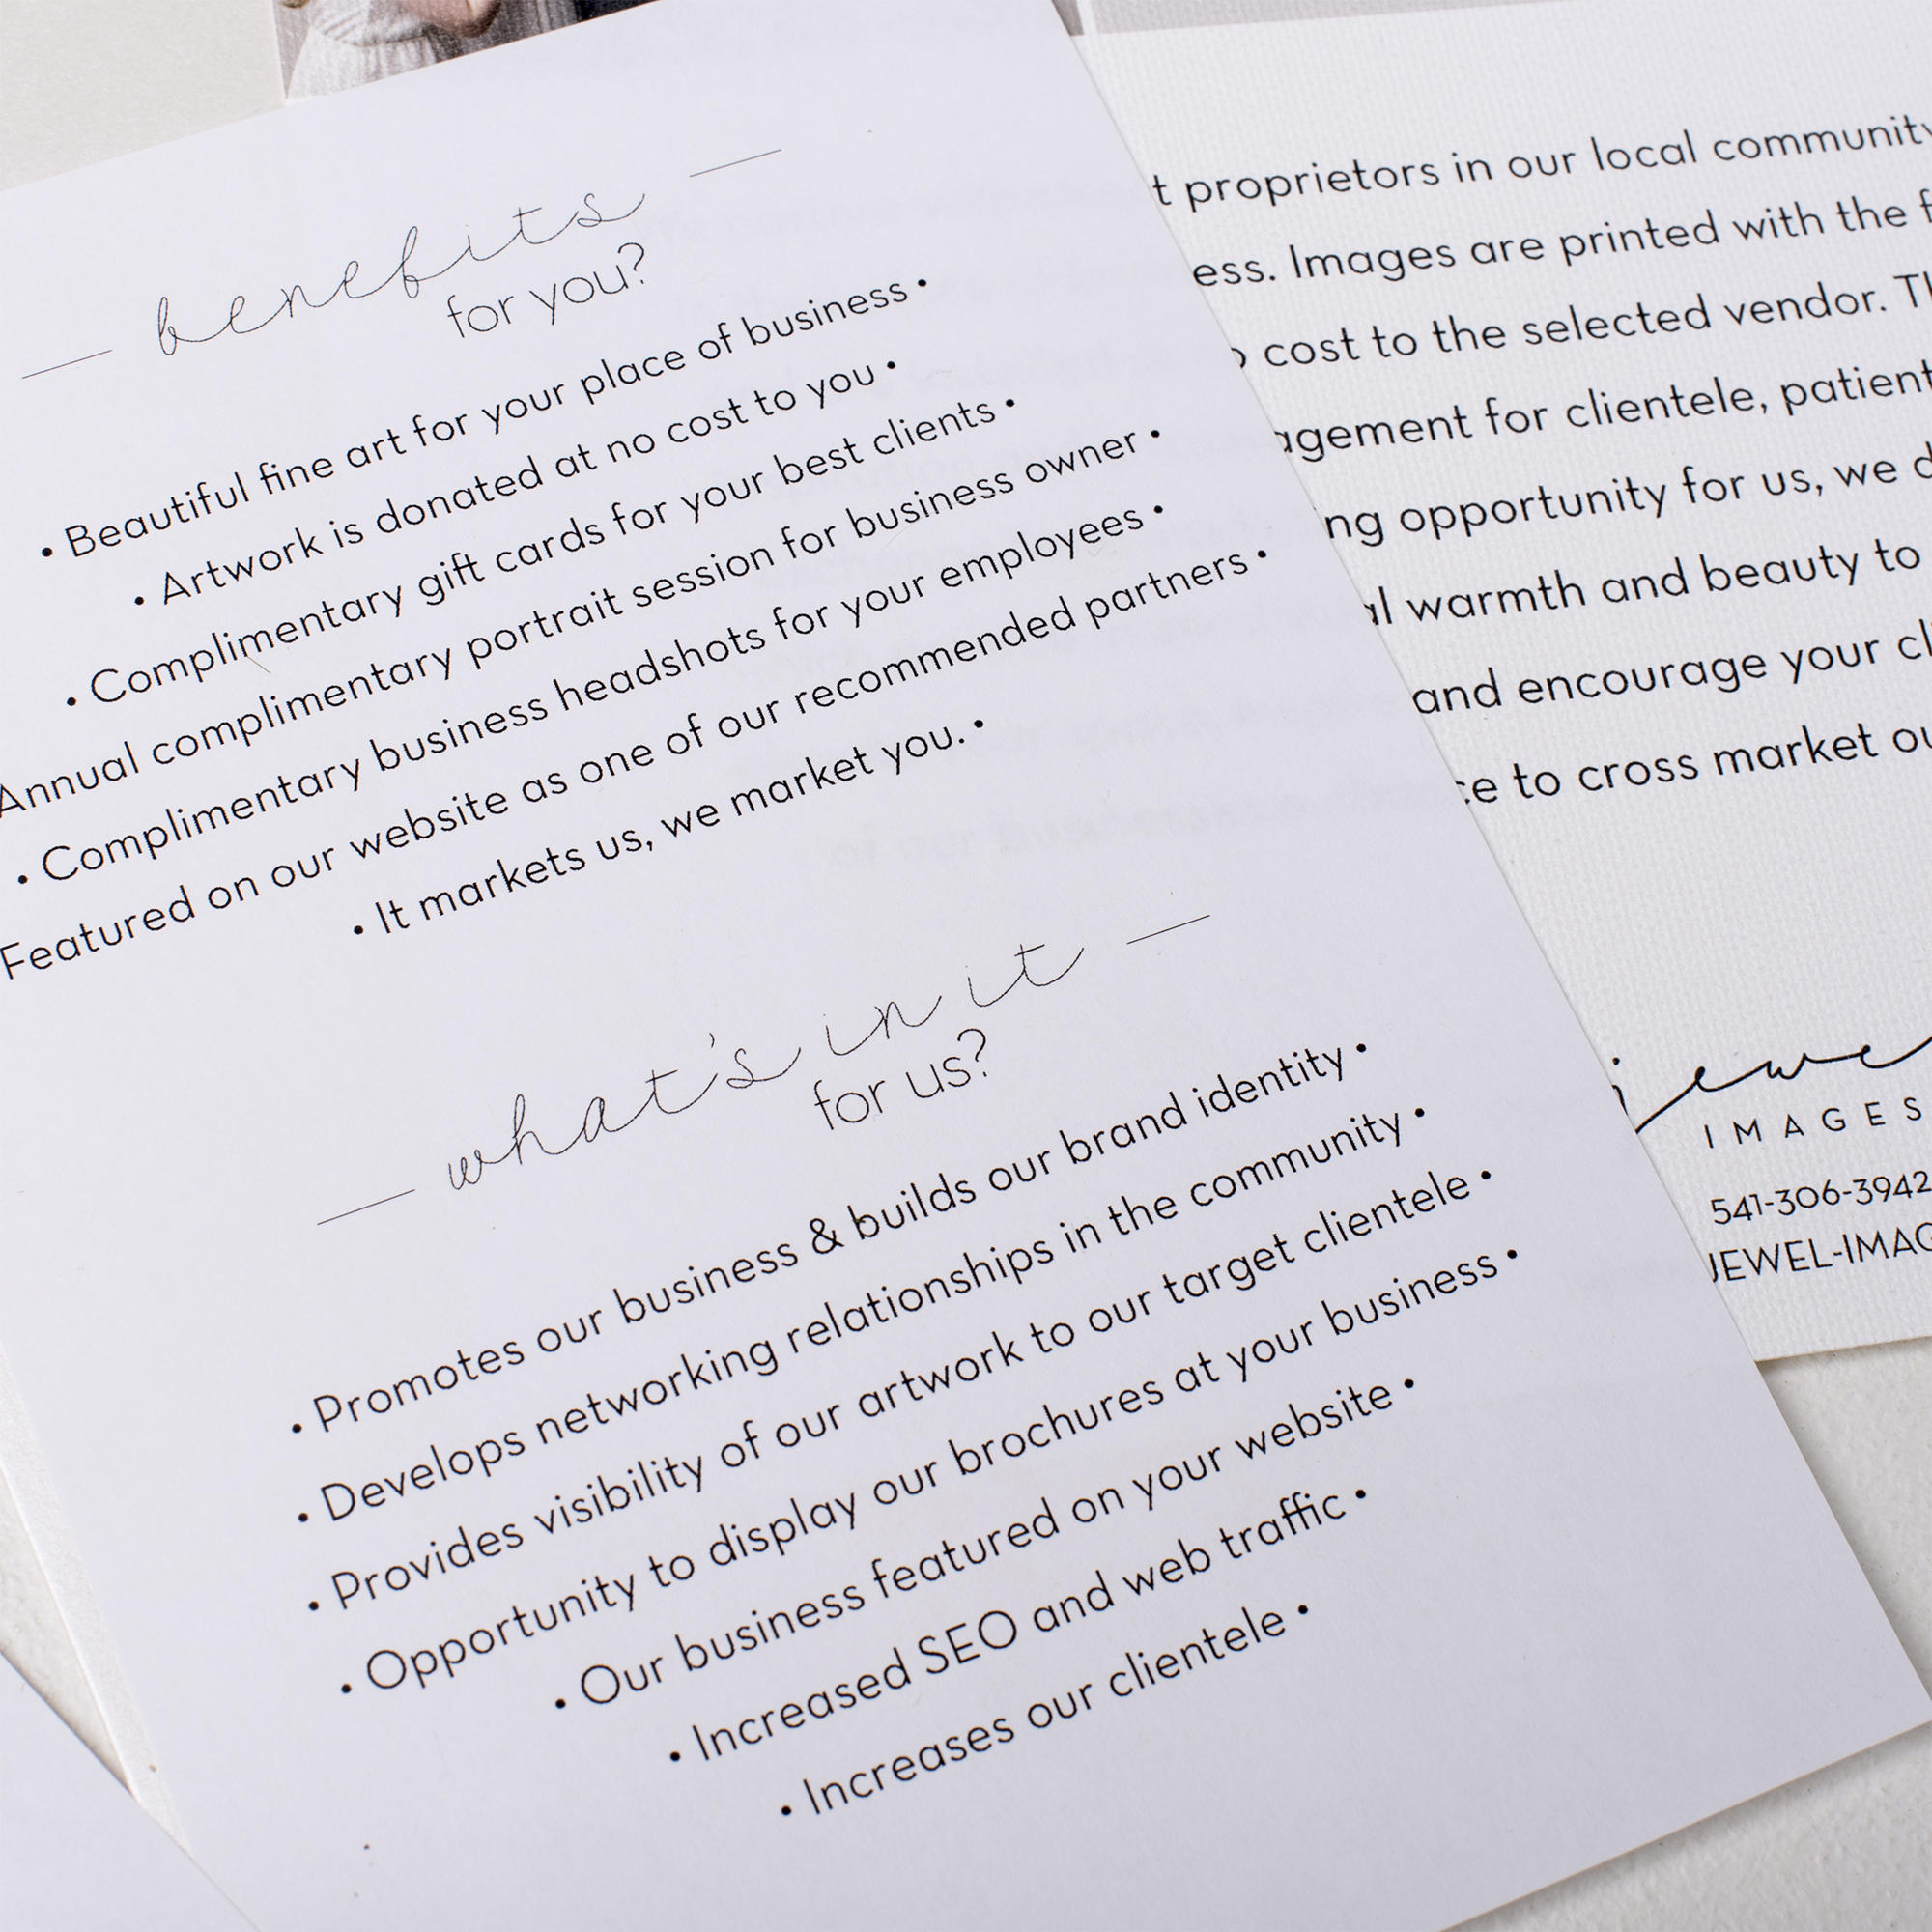 benefits
for you?
• Beautiful fine art for your place of business •
• Artwork is donated at no cost to you •
• Complimentary gift cards for your best clients •
Annual complimentary portrait session for business owner •
• Complimentary business headshots for your employees •
Featured on our website as one of our recommended partners •
• It markets us, we market you. •
what's in it
for us?
• Promotes our business & builds our brand identity •
• Develops networking relationships in the community •
• Provides visibility of our artwork to our target clientele •
• Opportunity to display our brochures at your business •
• Our business featured on your website •
• Increased SEO and web traffic •
• Increases our clientele •
proprietors in our local community
ess. Images are printed with the
cost to the selected vendor.
agement for clientele, patient
ng opportunity for us, we
warmth and beauty to
and encourage your
to cross market
jewel
IMAGES
541-306-3942
JEWEL-IMAG